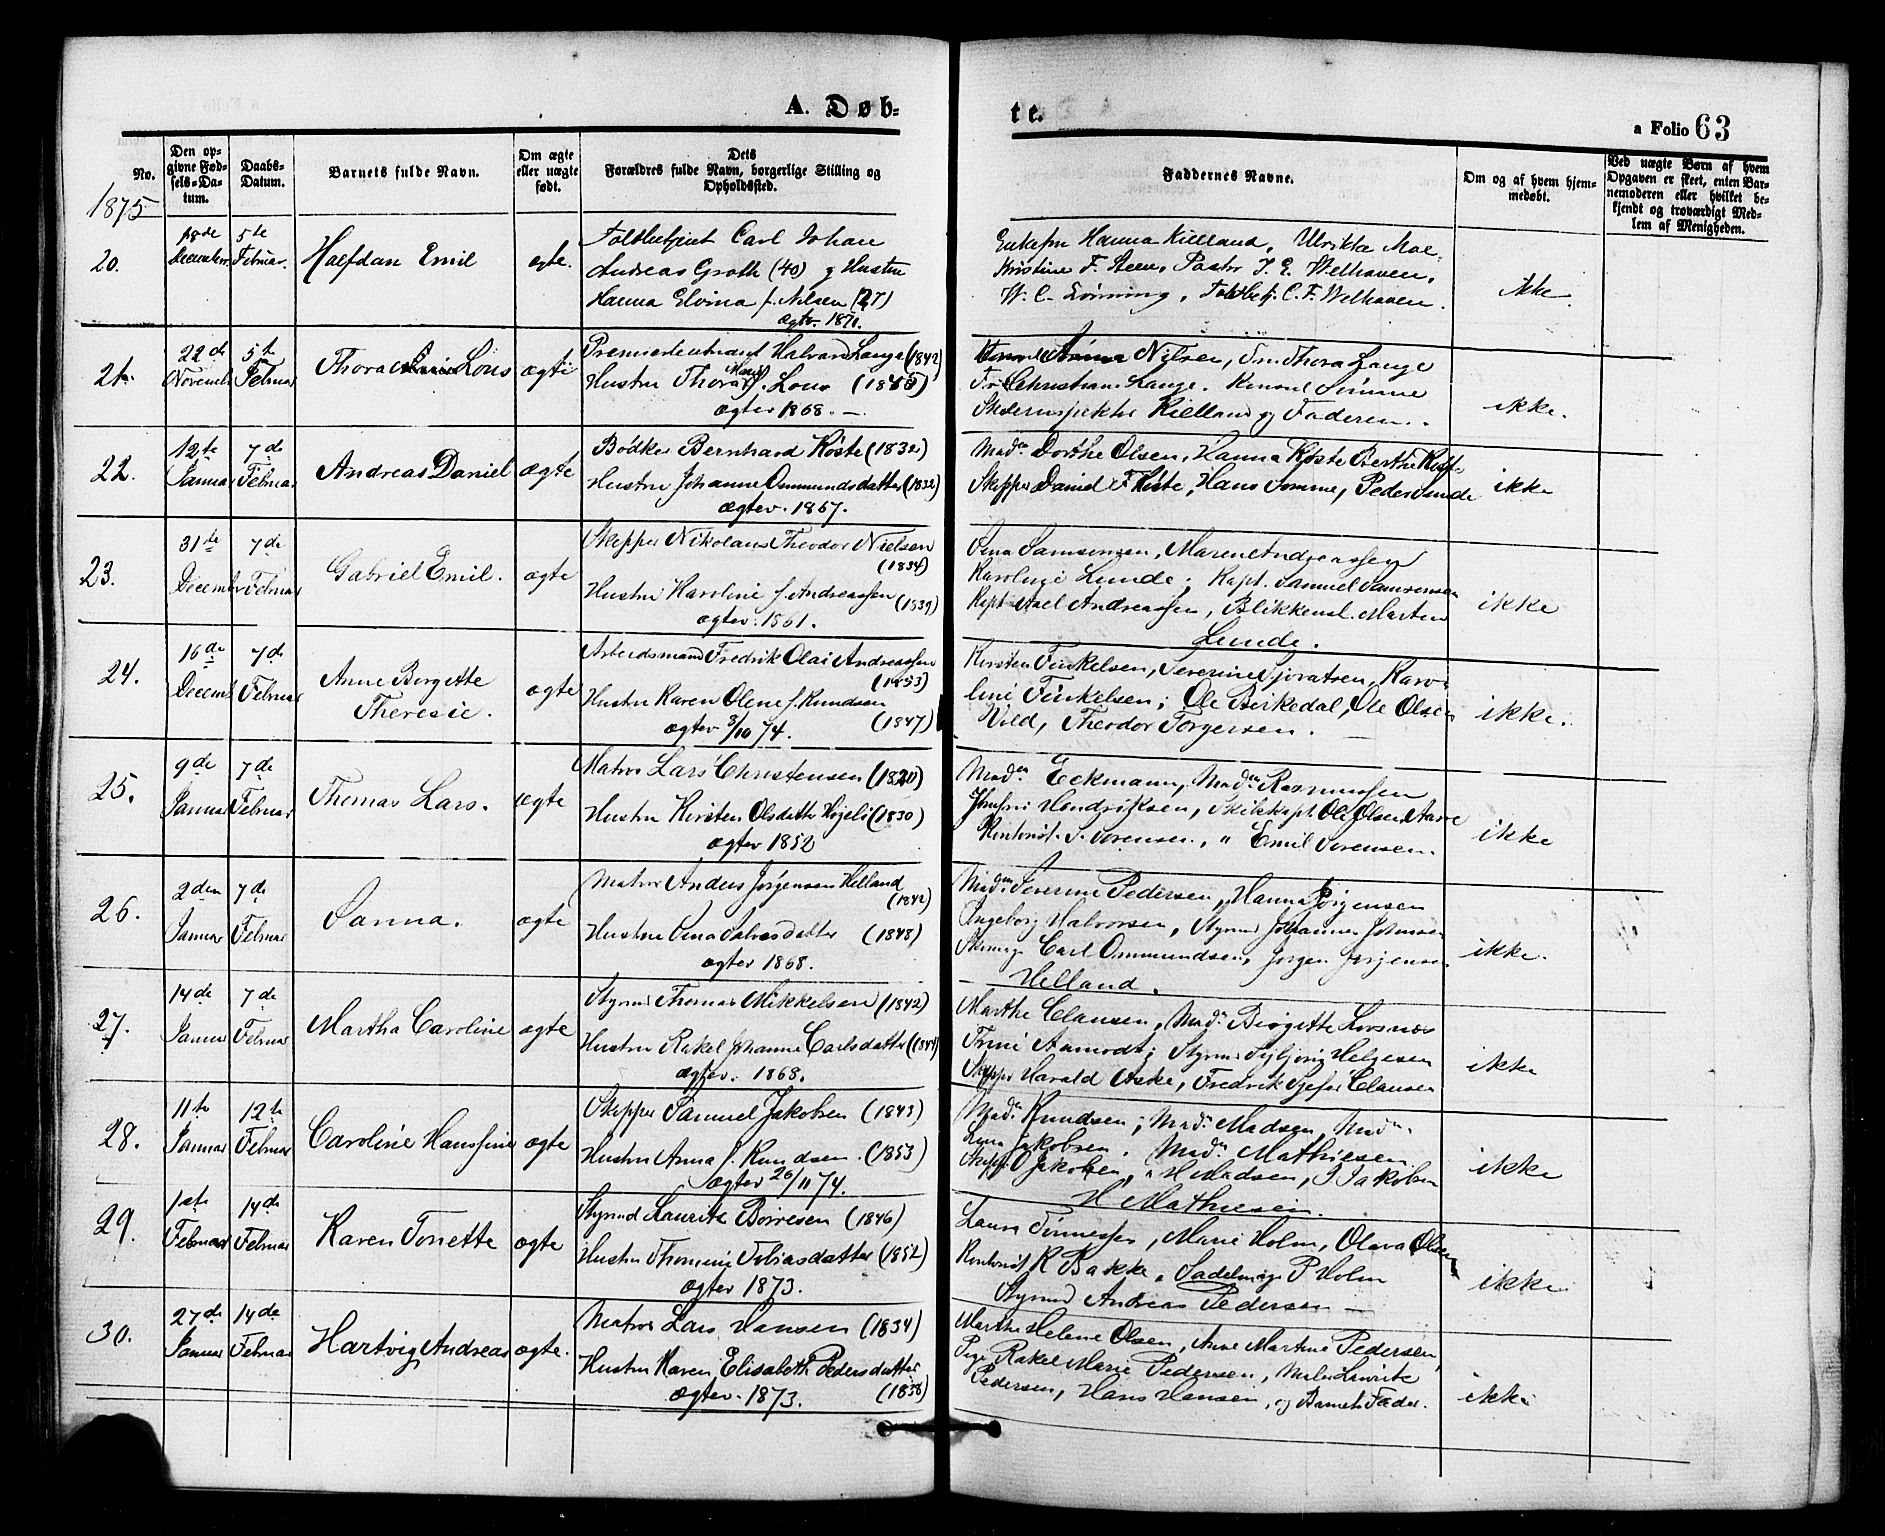 A. Døb=
te.
a Folio 63
No.
Den op-
givne Fød-
sels-Da-
tum.
Daabs-
Datum.
Barnets fulde Navn.
Om ægte
eller uægte
født.
Dets
Forældres fulde Navn, borgerlige Stilling og
Opholdssted.
Faddernes Navne.
Om og af hvem hjem-
medøbt.
Ved uægte Børn af hvem
Opgaven er skeet, enten Bar-
nemoderen eller hvilket be-
kjendt og troværdigt Med-
lem af Menigheden.
1875
20.
18de
December
5te
Februar.
Halfdan Emil
ægte.
Toldbetjent Carl Johan
Andreas Groth (40) g Hustru
Hanna Elvina f. Nilsen (27)
ægtev. 1871.
Enkefru Hanna Kielland, Ulrikka Moe,
Kristine F. Steen, Pastor J. E. Welhaven,
W. C. Lønning, Toldbetj. C. F. Welhaven.
ikke.
21.
22de
Novemb
5te
Februar
Thora Lous
ægte
Premierleutnant Halvard Lange (1842)
Hustru Thora Marie f. Lous
ægtev 1868. —
Nilsen, Frk Thora Lange
Christiane Lange. Konsul Sømme
Kielland og Faderen.
ikke.
22.
12te
Januar
7de
Februar
Andreas Daniel
ægte
Bødker Bernhard Køste (1832)
Hustru Johanne Ommundsdatter (1832)
ægtev. 1867.
Madn Dorthe Olsen, Hanna Køste Berthe
Skipper Daniel F Køste, Hans Sømme, Peder Sunde
ikke
23.
31te
December
7de
Februar
Gabriel Emil.
ægte
Skipper Nikolaus Theodor Nielsen
(1834)
Hustru Karoline f. Andreassen (1839)
ægtev. 1861.
Samsonsen, Maren Andreassen
Karoline Lunde; Kapt. Samuel Samsonsen
Kapt Axel Andreassen, Blikkensl. Marten
Lunde.
ikke
24.
16de
Decemb
7de
Februar
Anne Bergitte
Theresie.
ægte
Arbeidsmand Fredrik Olai Andreassen
(1853)
Hustru Karen Olene f. Knudsen
(1847)
ægtev 8/10 74.
Kirsten Tinkelsen, Severine Karo-
line Tinkelsen; Ole Birkedal, Ole Olsen
Vold, Theodor Torgersen. —
ikke.
25.
9de
Januar
7de
Februar
Thomas Lars.
ægte
Matros Lars Christensen
Hustru Kirsten Olsdatter (1830)
ægtev 1852
Madn Eckmann, Madn Rasmussen
Hendriksen, Skibskapt. Ole Olsen
Kontorist S. Sørensen, " Emil Sørensen.
ikke
26.
2den
Januar
7de
Februar
Sanna.
ægte
Matros Anders Jørgensen Helland
(1842)
Hustru datter (1848)
ægtev 1868.
Madn Severine Pedersen, Hanna Jørgensen
Ingeborg Halvorsen, Styrmd Johannes Johnsen
Carl Ommundsen, Jørgen Jørgensen
Helland.
ikke.
27.
14de
Januar
7de
Februar
Martha Caroline
ægte
Styrmd Thomas Mikkelsen (1842)
Hustru Rakel Johanne Carlsdatter
ægtev. 1868.
Marthe Clausen, Madn Birgitte
Trine Aamodt; Styrmd Helgesen
Skipper Harald Aske, Fredrik Clausen
ikke
28.
11te
Januar
12te
Februar
Caroline Hansine
ægte
Skipper Samuel Jakobsen (1843)
Hustru Anna f. Knudsen. (1853)
ægtev 26/11 74.
Madn Knudsen; Madn Madsen, Madn
Lena Jakobsen. Madn Mathiesen
Skipper O Jakobsen, " H Madsen, J Jakobsen
H Mathiesen.
ikke
29.
1ste
Februar
14de
Februar
Karen Tonette
ægte
Styrmd Laurits Børresen (1846)
Hustru Thomine Tobiasdatter (1852)
ægtev 1873.
Laura Tønnessen, Marie Holm, Olava Olsen
Kontorist K Bakke, Sadelmager P Holm
Styrmd Andreas Pedersen —
ikke
30.
27de
Januar
14de
Februar
Hartvig Andreas
ægte.
Matros Lars Hansen (1834)
Hustru Karen Elisabeth Pedersdatter
(1838)
ægtev. 1873.
Marthe Helene Olsen, Anne Martine Pedersen,
Pige Rakel Marie Pedersen, Maler Lauritz
Pedersen, Hans Hansen, og Barnets Fader.
ikke